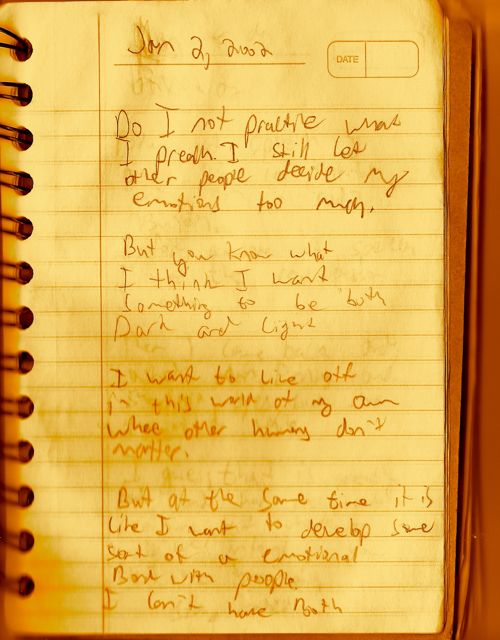 Jan 2, 2002
DATE
Do I not practise what
I preach. I still let
other people decide my
emotions too much.
But you know what
I think I want
Something to be both
Dark and Light
I want to live off
in this world of my own
whee other humans don't
matter.
But at the same time it is
like I want to develop some
sort of a emotional
Bond with people
I can't have Both